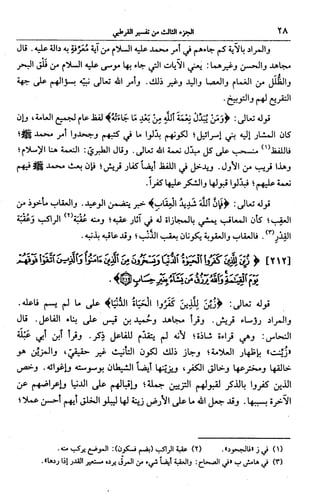 ٢٨ الجزء الثالث من تفسير القرطبي
والمراد بالآية كم جاءهم في أمر محمد عليه السلام من آية مُعَرِّفةٍ به دالة عليه. قال
مجاهد والحسن وغيرهما: يعني الآيات التي جاء بها موسى عليه السلام من فَلْق البحر
والظُّلَل من الغمام والعصا واليد وغير ذلك. وأمر الله تعالى نبيّه بسؤالهم على جهة
التقريع لهم والتوبيخ.
قوله تعالى: ﴿وَمَن يُبَدِّلْ نِعْمَةَ اللَّهِ مِنْ بَعْدِ مَا جَاءَتْهُ﴾ لفظ عام لجميع العامة، وإن
كان المشار إليه بني إسرائيل؛ لكونهم بدّلوا ما في كتبهم وجحدوا أمر محمد ﷺ؛
فاللفظ(١) منسحب على كل مبدّل نعمة الله تعالى. وقال الطبريّ: النعمة هنا الإسلام؛
وهذا قريب من الأول. ويدخل في اللفظ أيضاً كفار قريش؛ فإن بعث محمد ﷺ فيهم
نعمة عليهم؛ فبدّلوا قبولها والشكر عليها كفراً.
قوله تعالى: ﴿فَإِنَّ اللَّهَ شَدِيدُ الْعِقَابِ﴾ خبر يتضمن الوعيد. والعقاب مأخوذ من
العقِب؛ كأن المعاقِب يمشي بالمجازاة له في آثار عقبه؛ ومنه عُقْبَة(٢) الراكب وعُقْبَة
القِدْر(٣). فالعقاب والعقوبة يكونان بعقب الذَّنْب؛ وقد عاقبه بذنبه.
[٢١٢] ﴿زُيِّنَ لِلَّذِينَ كَفَرُوا الْحَيَاةُ الدُّنْيَا وَيَسْخَرُونَ مِنَ الَّذِينَ آمَنُوا وَالَّذِينَ اتَّقَوْا فَوْقَهُمْ
يَوْمَ الْقِيَامَةِ وَاللَّهُ يَرْزُقُ مَن يَشَاءُ بِغَيْرِ حِسَابٍ﴾.
قوله تعالى: ﴿زُيِّنَ لِلَّذِينَ كَفَرُوا الْحَيَاةُ الدُّنْيَا﴾ على ما لم يسم فاعله.
والمراد رؤساء قريش. وقرأ مجاهد وحُميد بن قيس على بناء الفاعل. قال
النحاس: وهي قراءة شاذة؛ لأنه لم يتقدّم للفاعل ذِكر. وقرأ ابن أبي عَبْلة
«زُيِّنت» بإظهار العلامة؛ وجاز ذلك لكون التأنيث غير حقيقيّ، والمزيِّن هو
خالقها ومخترعها وخالق الكفر، ويزيّنها أيضاً الشيطان بوسوسته وإغوائه. وخص
الذين كفروا بالذكر لقبولهم التزيين جملة؛ وإقبالهم على الدنيا وإعراضهم عن
الآخرة بسببها. وقد جعل الله ما على الأرض زينة لها ليبلو الخلق أيهم أحسن عملا؛
(١) في ز «فالجحود». (٢) عقبة الراكب (بضم فسكون): الموضع يركب منه.
(٣) في هامش ب «في الصحاح: والعقبة أيضاً شيء من المرق يرده مستعير القدر إذا ردها».